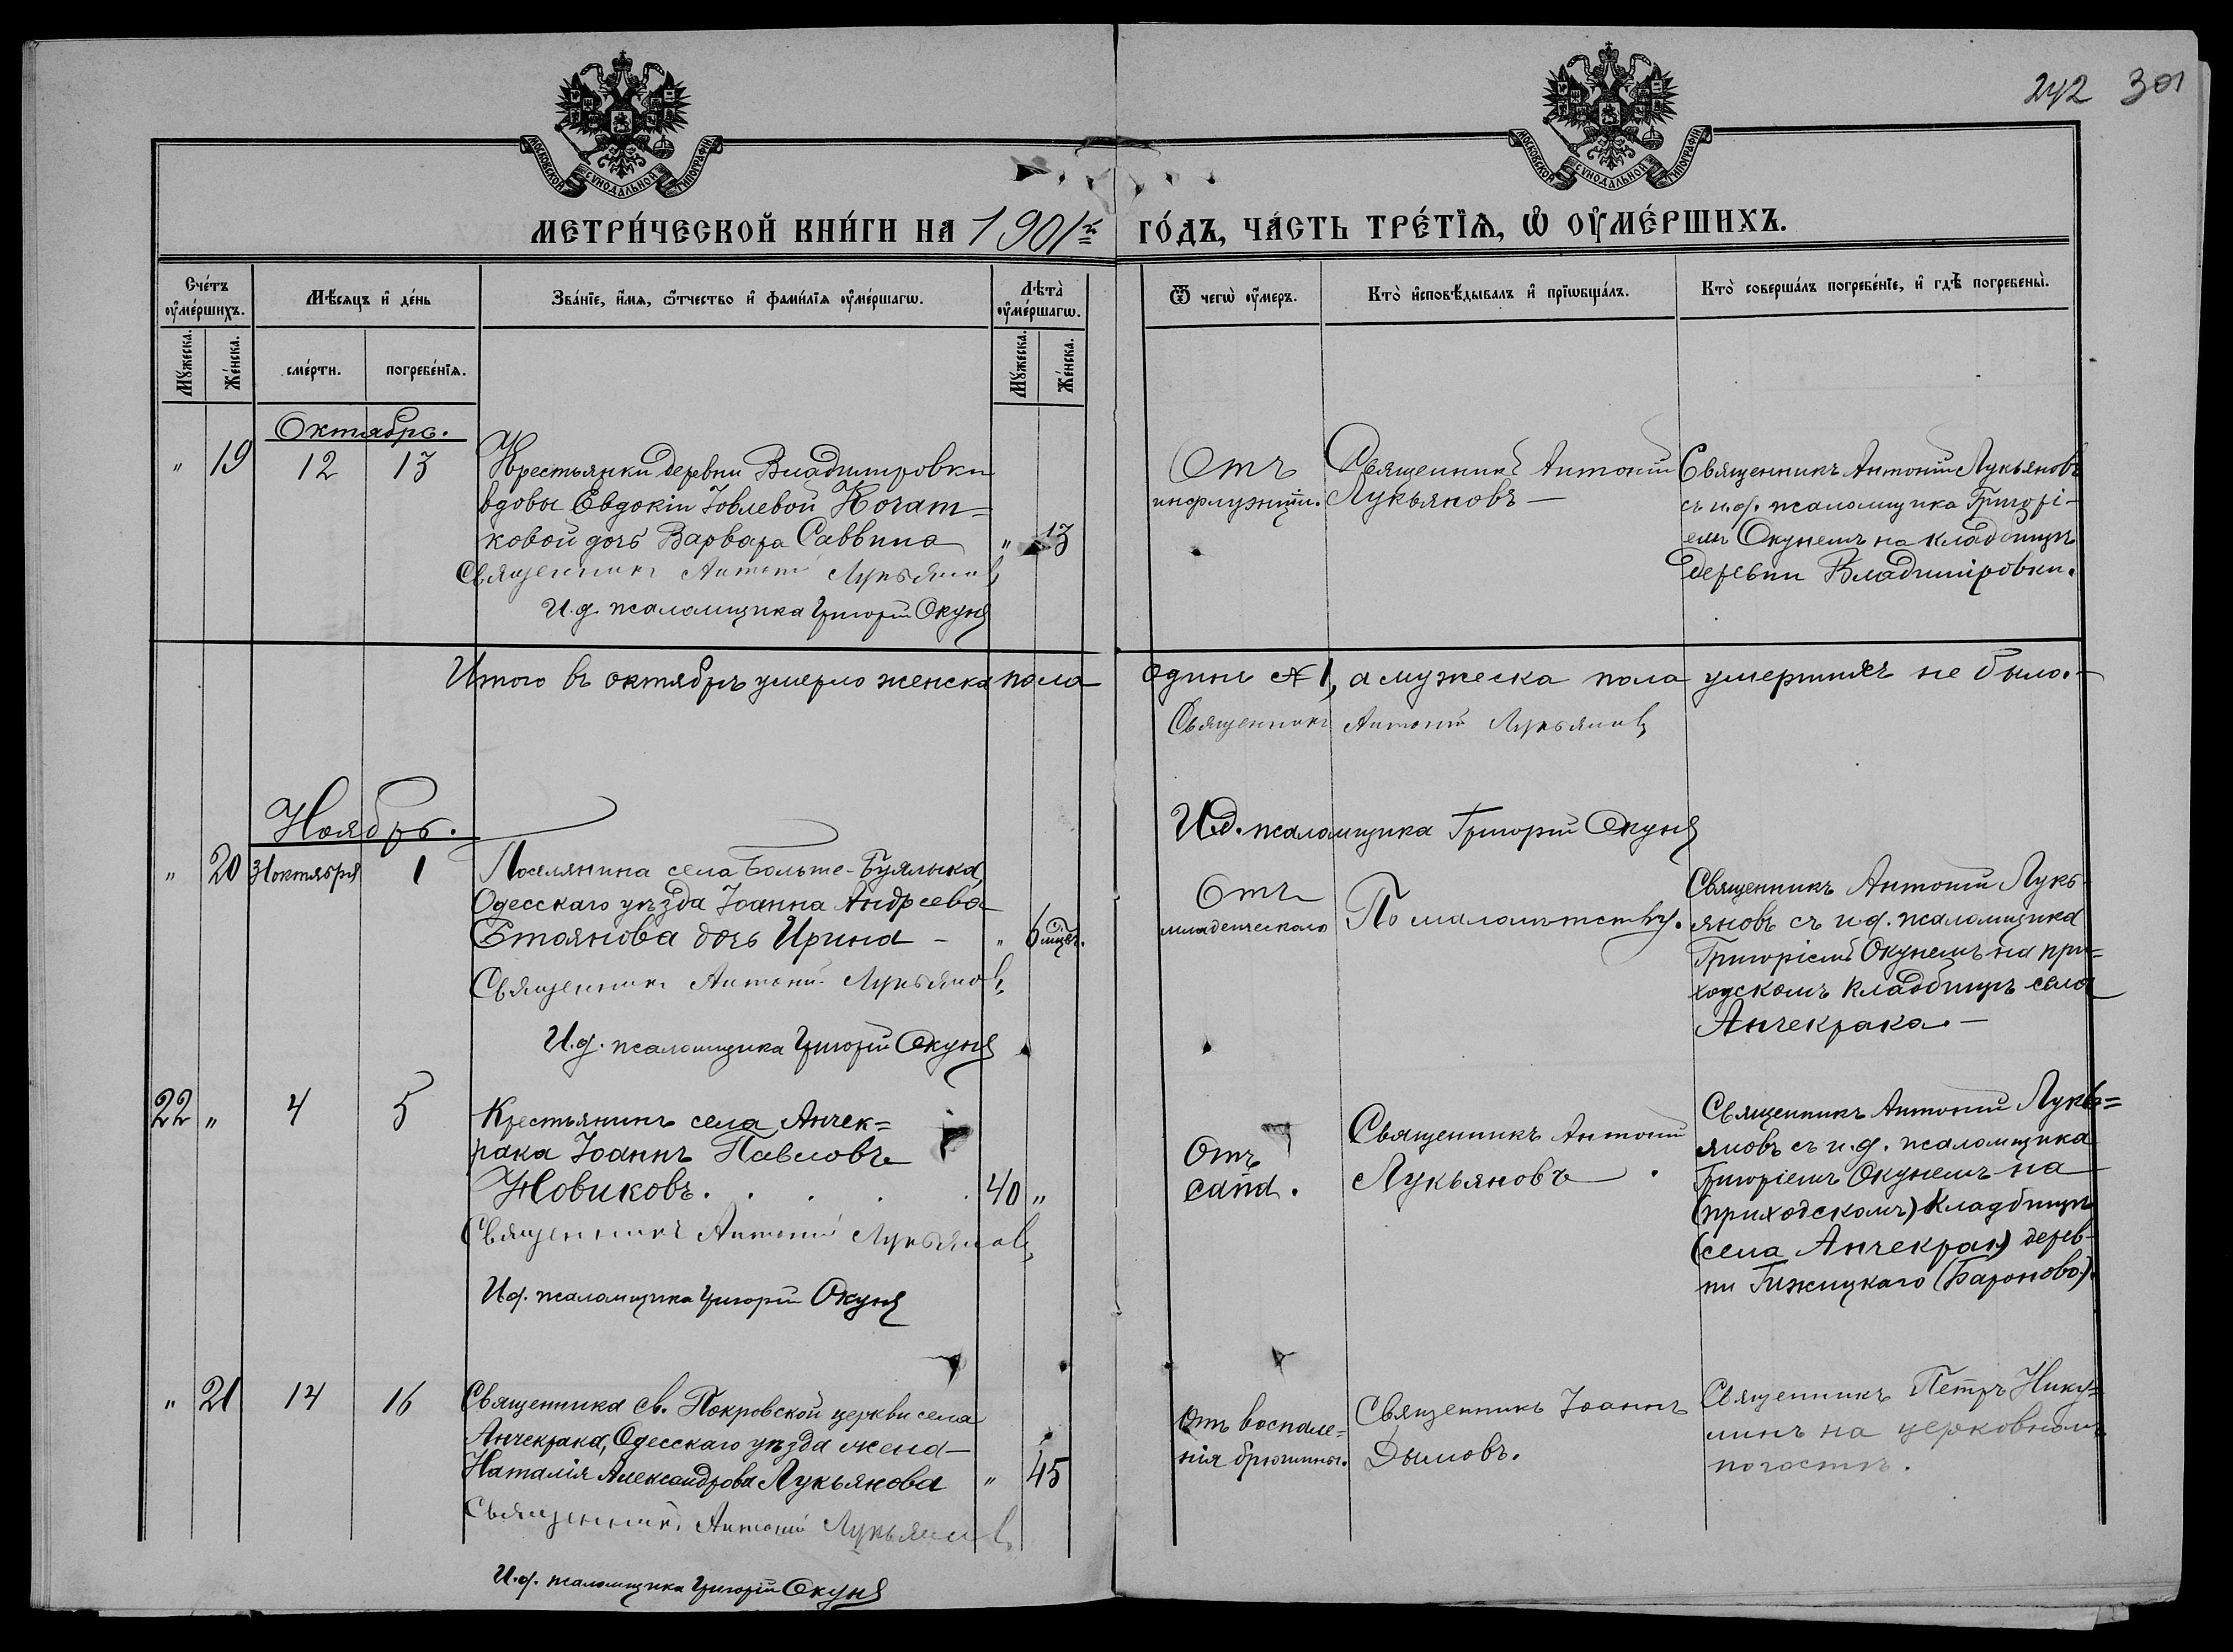 242 301
МОСКОВСКОЙ СѴНОДАЛЬНОЙ ТИПОГРАФІИ
МОСКОВСКОЙ СѴНОДАЛЬНОЙ ТИПОГРАФІИ
МЕТРИ́ЧЕСКОЙ КНИ́ГИ НА 1901й ГО́ДЪ, ЧА́СТЬ ТРЕ́ТІѦ, Ѡ҆ ОУ҆МЕ́РШИХЪ.
Сче́тъ оу҆ме́ршихъ.
Мѣ́сяцъ и҆ де́нь
Зва́ніе, и҆́мя, ѻ҆́тчество и҆ фами́лія оу҆ме́ршагѡ.
Лѣ́та оу҆ме́ршагѡ.
Ѿ чегѡ̀ оу҆́меръ.
Кто̀ и҆сповѣ́дывалъ и҆ пріѡбща́лъ.
Кто̀ соверша́лъ погребе́ніе, и҆ гдѣ̀ погребены̀.
Мꙋ́жеска.
Же́нска.
сме́рти.
погребе́нія.
Мꙋ́жеска.
Же́нска.
Октябрь.
" 19 12 13
Крестьянки деревни Владимировки
вдовы Евдокіи Іовлевой Когат=
ковой дочь Варвара Саввина " 13
Священникъ Антоній Лукьяновъ
И.д. псаломщика Григорій Окунь
Отъ
инфлуэнціи.
Священникъ Антоній
Лукьяновъ —
Священникъ Антоній Лукьяновъ
съ и.д. псаломщика Григорі-
емъ Окунемъ на кладбищѣ
деревни Владиміровки.
Итого въ октябрѣ умерло женска пола одинъ № 1, а мужеска пола умершихъ не было.—
Священникъ Антоній Лукьяновъ
И.д. псаломщика Григорій Окунь
Ноябрь.
" 20 31 октября 1
Поселянина села Больше-Буялыка
Одесскаго уѣзда Іоанна Андреева
Стоянова дочь Ирина - " 6 мцевъ.
Священникъ Антоній Лукьяновъ
И.д. псаломщика Григорій Окунь
Отъ
младенческаго
По малолѣтству.
Священникъ Антоній Лукь-
яновъ съ и.д. псаломщика
Григоріемъ Окунемъ на при=
ходскомъ кладбищѣ села
Анчекрака.—
22 " 4 5
Крестьянинъ села Анчек=
рака Іоаннъ Павловъ
Новиковъ. . . . . 40 "
Священникъ Антоній Лукьяновъ
И.д. псаломщика Григорій Окунь
Отъ
сапа.
Священникъ Антоній
Лукьяновъ .
Священникъ Антоній Лукь=
яновъ съ и.д. псаломщика
Григоріемъ Окунемъ на
(приходскомъ) кладбищѣ
(села Анчекрак) дерев-
ни Гижицкаго (Бароново).
" 21 14 16
Священника св. Покровской церкви села
Анчекрака, Одесскаго уѣзда жена —
Наталія Александрова Лукьянова " 45
Священникъ Антоній Лукьяновъ
И.д. псаломщика Григорій Окунь
Отъ воспале=
нія брюшины.
Священникъ Іоаннъ
Дымовъ.
Священникъ Петръ Нику=
линъ на церковномъ
погостѣ.